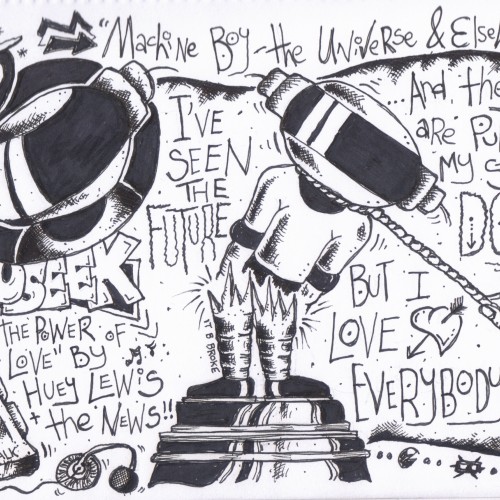 "Machine Boy - the Universe & Else
I'VE
SEEN
THE
FUTURE
...And the
are pu
my c
Do
USEEK
the Power of
Love" by
Huey Lewis
+ the News!!
IT B BROKE
But I
LOVE
EVERYBODY
ALK